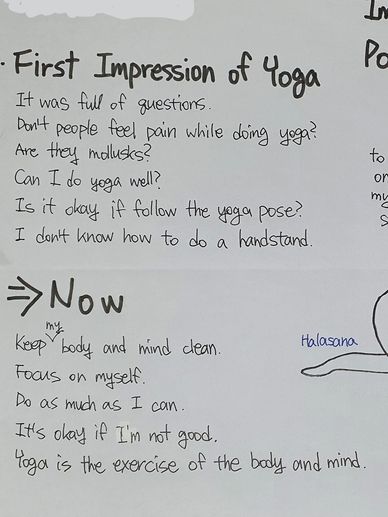 · First Impression of Yoga
It was full of questions.
Don't people feel pain while doing yoga?
Are they mollusks?
Can I do yoga well?
Is it okay if follow the yoga pose?
I don't know how to do a handstand.
⇒ Now
Keep my body and mind clean.
Focus on myself.
Do as much as I can.
It's okay if I'm not good.
Yoga is the exercise of the body and mind.
Im
Po
to
or
my
s
Halasana